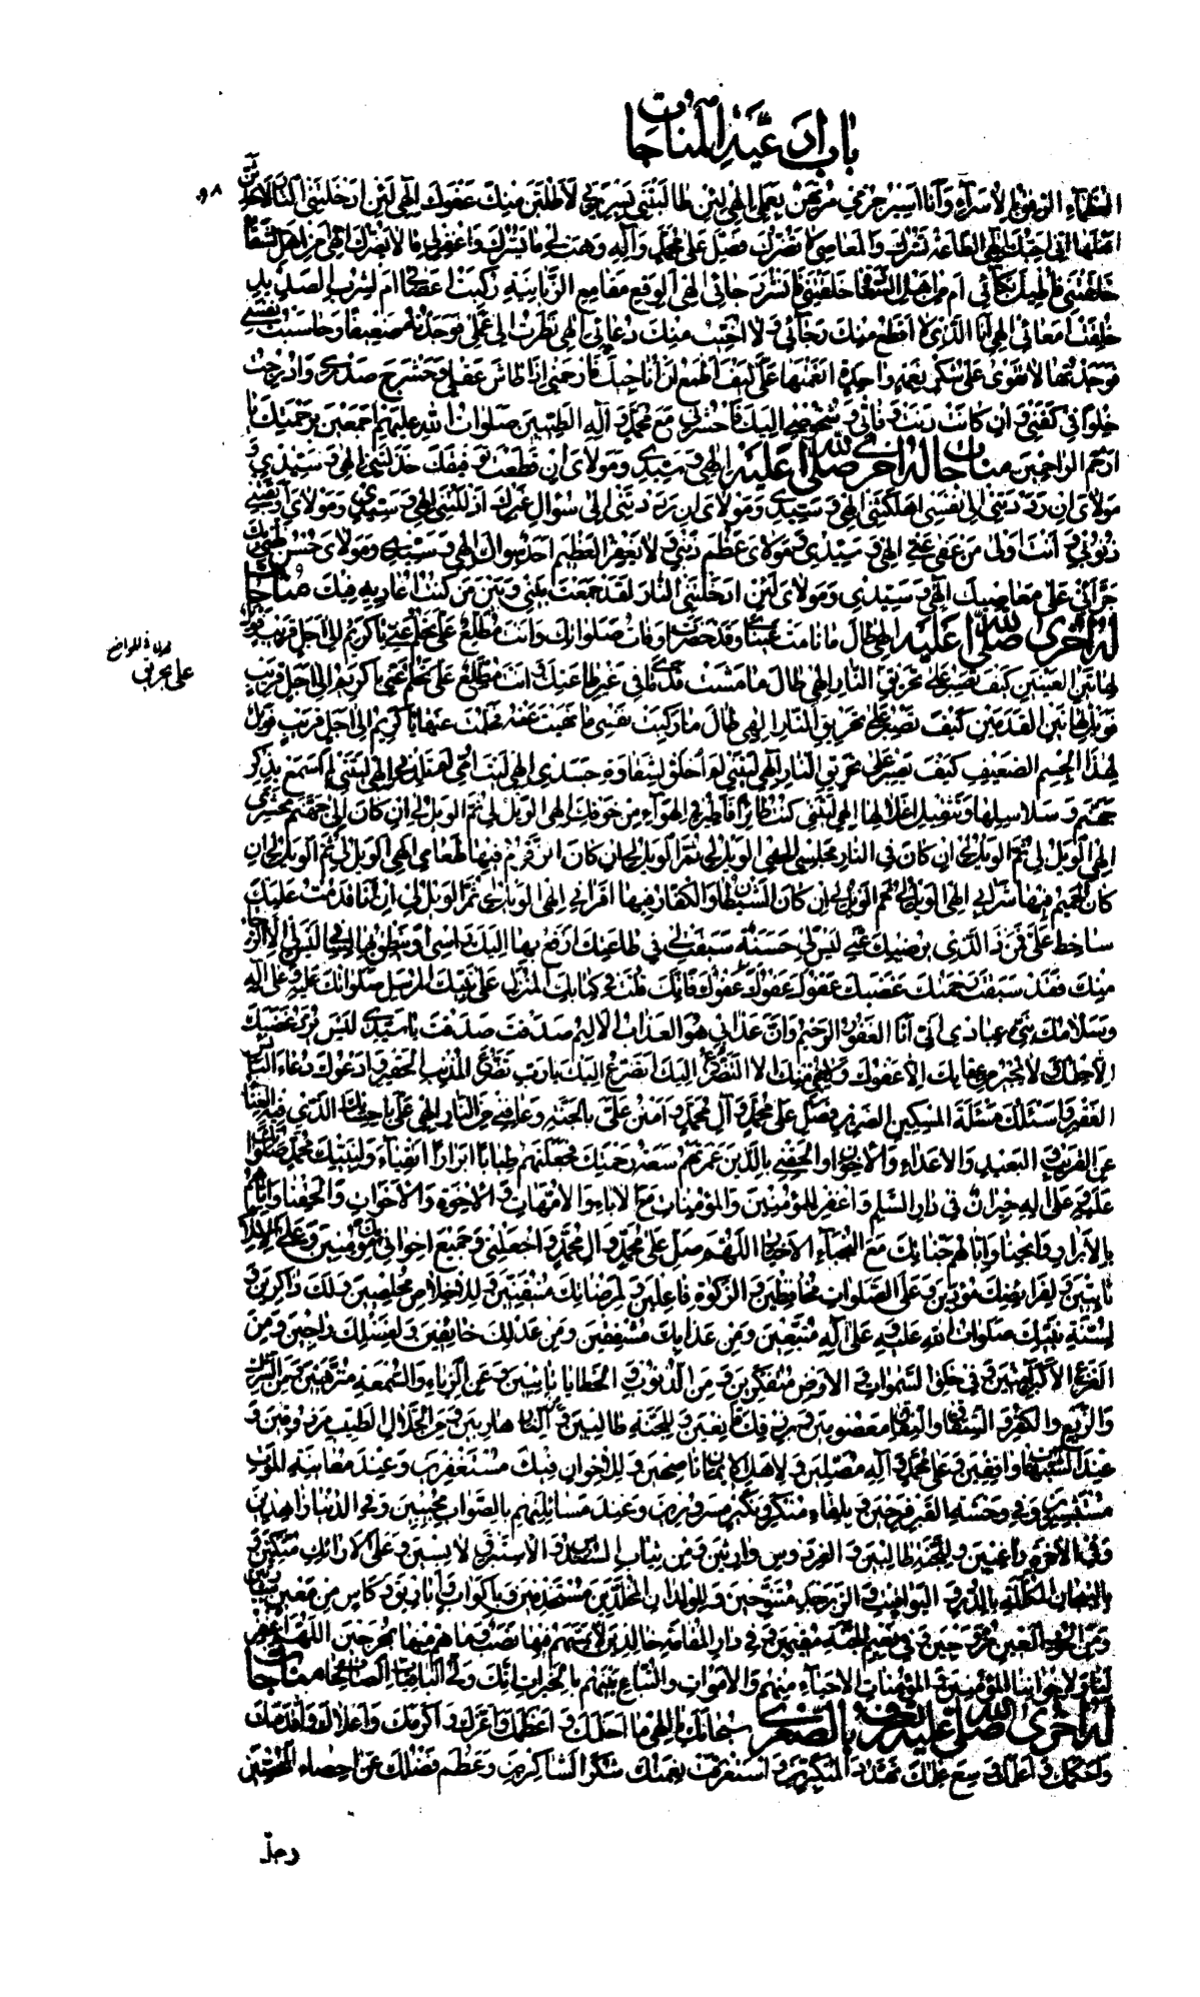 باب ادعية المناجات
٩٨
العظماء الرفق بالاسراء وانا اسير بجرمي مرتهن بعملي الهي لئن طالبتني بسريرتي لاطلبن منك عفوك الهي لئن ادخلتني النار لاحدثن
اهلها اني احبك الهي الطاعة تسرك والمعاصي لا تضرك فصل على محمد وآله وهب لي ما يسرك واغفر لي ما لا يضرك الهي من اهل الشقاء
خلقتني فاطيل بكائي ام من اهل السعادة خلقتني فانشر رجائي الهي الوقع مقامع الزبانية ركبت اعضائي ام لشرب الصديد
خلقت امعائي الهي انا الذي لا اقطع منك رجائي ولا اخيب منك دعائي الهي نظرت الى عملي فوجدته ضعيفا وحاسبت نفسي
فوجدتها لا تقوى على شكر نعمة واحدة انعمتها علي فكيف اطمع ان اناجيك فارحمني اذا طاش عقلي وحشرج صدري وادرجت
خلوا في كفني وان كانت دنت وفاتي وشخوصي اليك فاحشرني مع محمد وآله الطيبين صلوات الله عليهم اجمعين برحمتك يا
ارحم الراحمين مناجات له اخرى صلى الله عليه الهي وسيدي ومولاي ان قطعت توفيقك خذلتني الهي وسيدي و
مولاي ان رددتني الى نفسي اهلكتني الهي وسيدي ومولاي ان رددتني الى سؤال غيرك اذللتني الهي وسيدي ومولاي اوبقتني
ذنوبي وانت اولى من عفى عني الهي وسيدي ومولاي عظم ذنبي ولا يغفر العظيم احد سواك الهي وسيدي ومولاي حسن ظني بك
جرأني على معاصيك الهي وسيدي ومولاي لئن ادخلتني النار لقد جمعت بيني وبين من كنت اعاديه فيك مناجات
له اخرى صلى الله عليه الهي طال ما نامت عيناي وقد حضرت اوقات صلواتك وانت مطلع علي تحلم عني يا كريم الى اجل قريب فويل
لهاتين العينين كيف تصبر على تحريق النار الهي طال ما مشت قدماي في غير طاعتك وانت مطلع علي تحلم عني يا كريم الى اجل قريب
فويل لهاتين القدمين كيف تصبر على تحريق النار الهي طال ما ركبت نفسي ما نهيت عنه فحلمت عنها يا كريم الى اجل قريب فويل
لهذا الجسم الضعيف كيف يصبر على تحريق النار الهي ليتني لم اخلق لشقاوة جسدي الهي ليت امي لم تلدني الهي ليتني لم اسمع بذكر
جهنم وسلاسلها وتثقيل اغلالها الهي ليتني كنت طائرا فاطير في الهواء من خوفك الهي الويل لي ثم الويل لي ان كان الى جهنم محشري
الهي الويل لي ثم الويل لي ان كان في النار مجلسي الهي الويل لي ثم الويل لي ان كان الزقوم فيها طعامي الهي الويل لي ثم الويل لي ان
كان الحميم فيها شرابي الهي الويل لي ثم الويل لي ان كان الشيطان والكفار فيها اقراني الهي الويل لي ثم الويل لي ان انا قدمت عليك
ساخط علي فمن ذا الذي يرضيك عني ليس لي حسنة سبقت لي في طاعتك ارفع بها اليك راسي او ينطق بها لساني ليس لي الا الرجاء
منك فقد سبقت رحمتك غضبك عفوك عفوك عفوك فانك قلت في كتابك المنزل على نبيك المرسل صلواتك عليه وعلى آله
وسلامك نبئ عبادي اني انا الغفور الرحيم وان عذابي هو العذاب الاليم صدقت صدقت يا سيدي ليس يرد غضبك
الا حلمك ولا يجير من عقابك الا عفوك ولا ينجي منك الا التضرع اليك اتضرع اليك يا رب تضرع المذنب الحقير وادعوك دعاء البائس
الفقير واسئلك مسئلة المسكين الضرير فصل على محمد وآل محمد وامنن علي بالجنة وعافني من النار الهي
عن القريب والبعيد والاعداء والاخوان
عليه وعلى آله جيرانا في دار السلام واغفر للمؤمنين والمؤمنات مع الاباء والامهات والاخوة والاخوات والحقنا واياهم
بالابرار اللهم صل على محمد وآل محمد واجعلني وجميع اخواني بك مؤمنين وعلى الاسلام
ثابتين ولفرائضك مؤدين وعلى الصلوات محافظين وللزكوة فاعلين ولمرضاتك متبعين ولك بالاخلاص مخلصين ولك ذاكرين و
لسنة نبيك صلوات الله عليه وعلى آله متبعين ومن عذابك مشفقين ومن عدلك خائفين ولفضلك راجين ومن
الفزع الاكبر آمنين وفي خلق السموات والارض متفكرين ومن الذنوب والخطايا تائبين وعن الرياء والسمعة منزهين ومن الشرك
والزيغ والكفر والشقاق والنفاق معصومين وبرزقك قانعين وللجنة طالبين ومن النار هاربين ومن الحلال الطيب مرزوقين و
عند الشبهات واقفين وعلى محمد وآله مصلين ولاهل الايمان ناصحين وللاخوان فيك مستغفرين وعند معاينة الموت
مستبشرين وفي وحشة القبر فرحين وبلقاء منكر ونكير مسرورين وعند مسائلتهم بالصواب مجيبين وفي الدنيا زاهدين
وفي الاخرة راغبين وللجنة طالبين وللفردوس وارثين ومن ثياب السندس والاستبرق لابسين وعلى الارائك متكئين و
بالتيجان المكللة بالدر واليواقيت والزبرجد متوجين وللولدان المخلدين مستخدمين وباكواب واباريق وكاس من معين شاربين
ومن الحور العين مزوجين وفي نعيم الجنة مقيمين وفي دار المقامة خالدين لا يمسهم فيها نصب وما هم منها بمخرجين اللهم اغفر
لنا ولاخواننا المؤمنين والمؤمنات الاحياء منهم والاموات والتابع بينهم بالخيرات انك ولي الباقيات الصالحات مناجات
له اخرى صلى الله عليه تعرف بالصغرى سبحانك يا الهي ما احلمك واعظمك واعزك واكرمك واعلاك واقدمك
واحكمك واعلمك وسع علمك تمرد المتكبرين واستغرقت نعمتك شكر الشاكرين وعظم فضلك عن احصاء المحصين
وجل